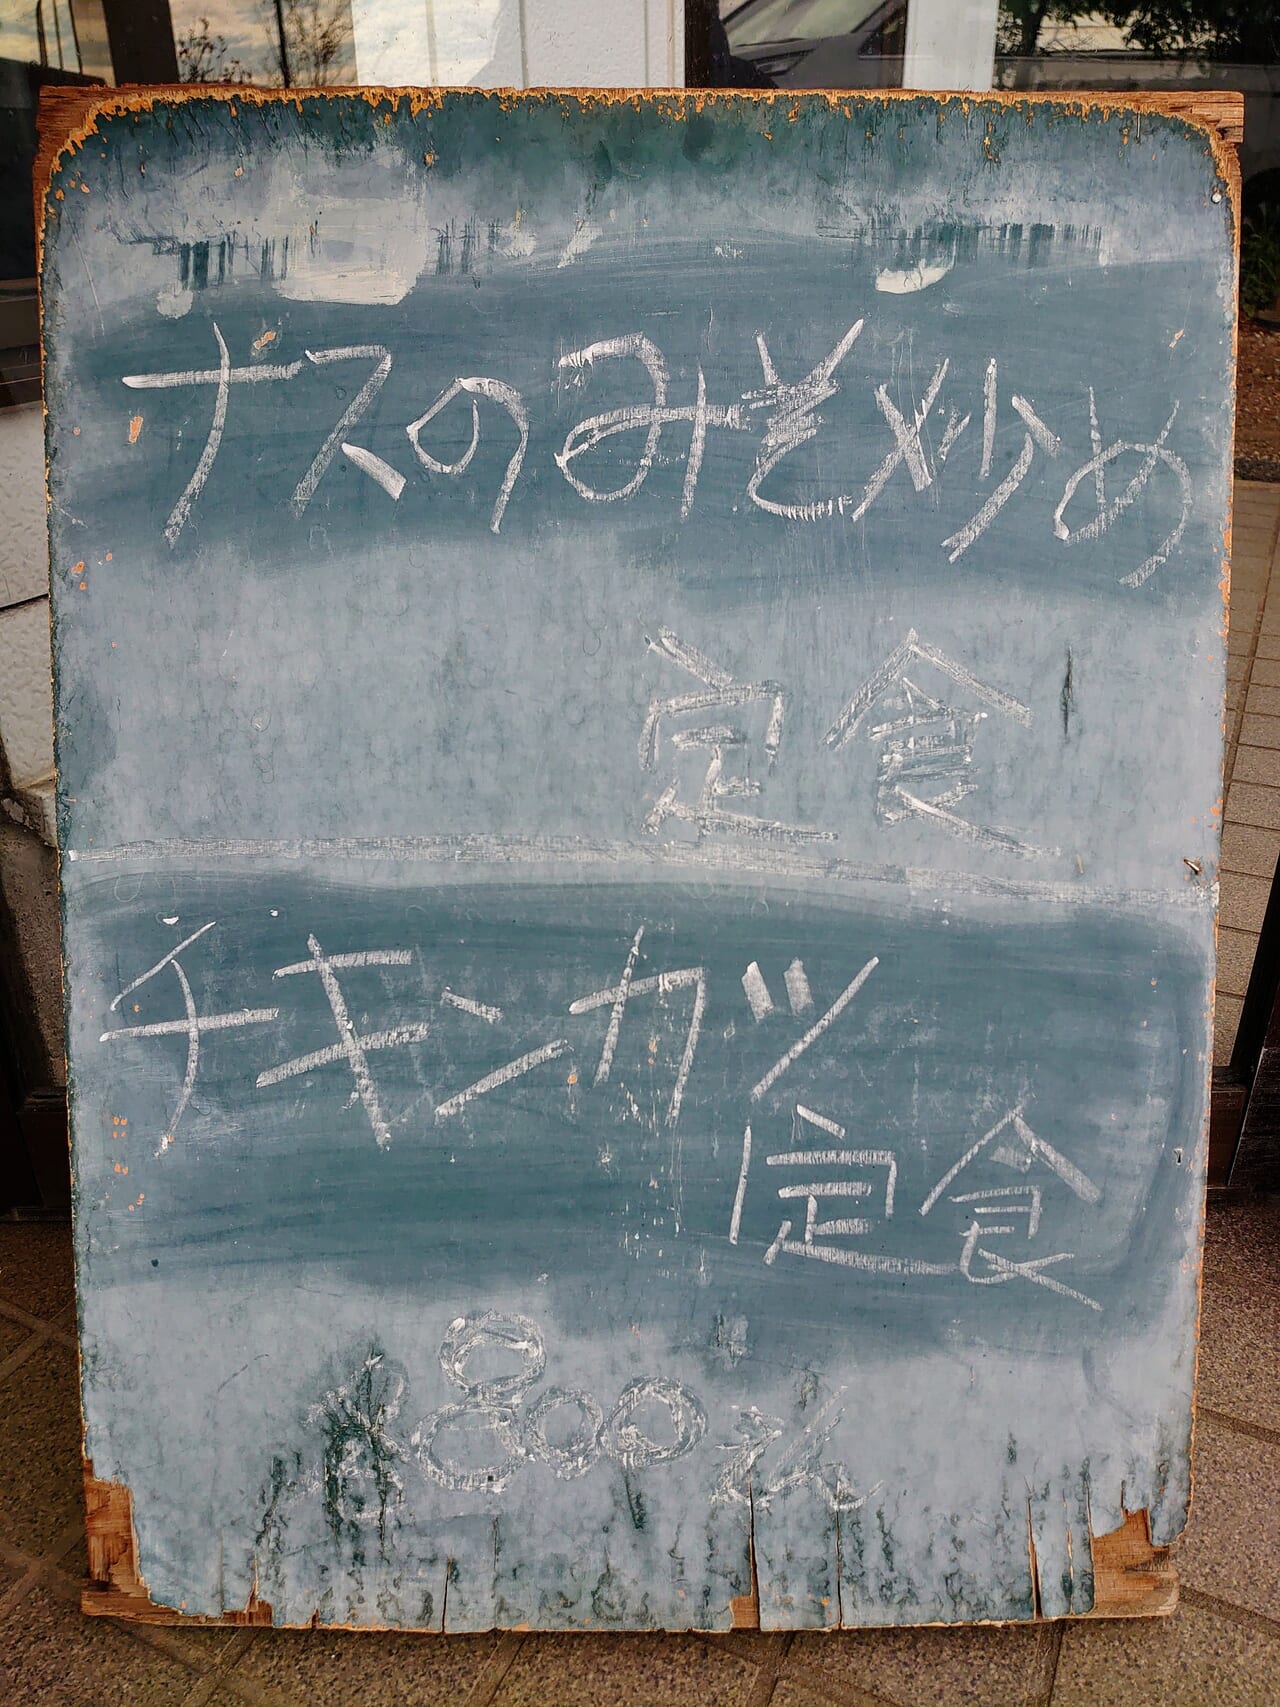 ナスのみそ炒め
定食
チキンカツ
定食
800えん